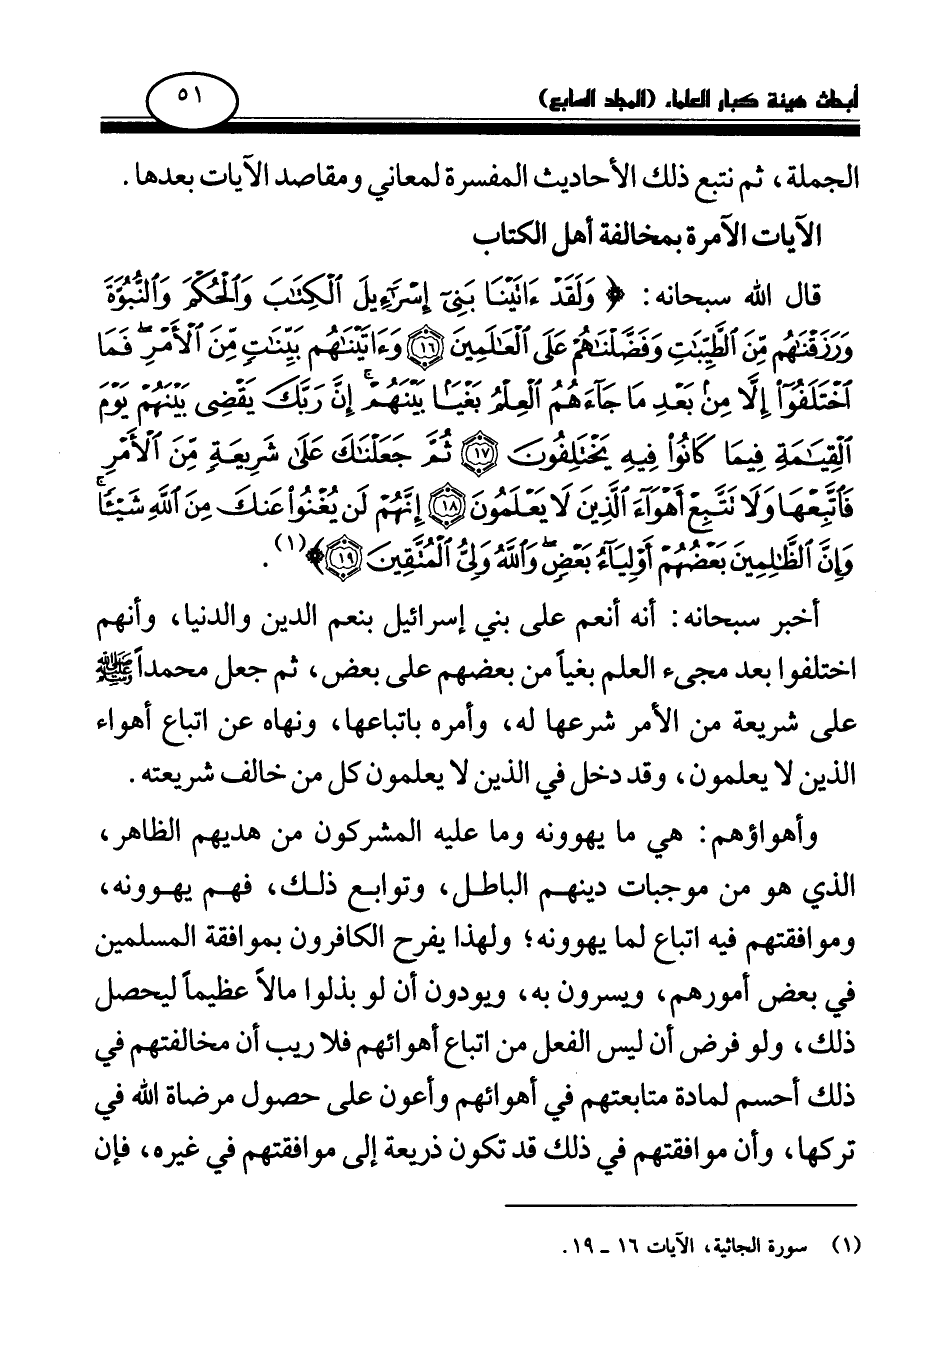 أبحاث هيئة كبار العلماء (المجلد السابع)
٥١
الجملة، ثم نتبع ذلك الأحاديث المفسرة لمعاني ومقاصد الآيات بعدها.
الآيات الآمرة بمخالفة أهل الكتاب
قال الله سبحانه: ﴿ وَلَقَدْ ءَاتَيْنَا بَنِىٓ إِسْرَٰٓءِيلَ ٱلْكِتَٰبَ وَٱلْحُكْمَ وَٱلنُّبُوَّةَ
وَرَزَقْنَٰهُم مِّنَ ٱلطَّيِّبَٰتِ وَفَضَّلْنَٰهُمْ عَلَى ٱلْعَٰلَمِينَ ١٦ وَءَاتَيْنَٰهُم بَيِّنَٰتٍ مِّنَ ٱلْأَمْرِ ۖ فَمَا
ٱخْتَلَفُوٓا۟ إِلَّا مِنۢ بَعْدِ مَا جَآءَهُمُ ٱلْعِلْمُ بَغْيًۢا بَيْنَهُمْ ۚ إِنَّ رَبَّكَ يَقْضِى بَيْنَهُمْ يَوْمَ
ٱلْقِيَٰمَةِ فِيمَا كَانُوا۟ فِيهِ يَخْتَلِفُونَ ١٧ ثُمَّ جَعَلْنَٰكَ عَلَىٰ شَرِيعَةٍ مِّنَ ٱلْأَمْرِ
فَٱتَّبِعْهَا وَلَا تَتَّبِعْ أَهْوَآءَ ٱلَّذِينَ لَا يَعْلَمُونَ ١٨ إِنَّهُمْ لَن يُغْنُوا۟ عَنكَ مِنَ ٱللَّهِ شَيْـًٔا ۚ
وَإِنَّ ٱلظَّٰلِمِينَ بَعْضُهُمْ أَوْلِيَآءُ بَعْضٍ ۖ وَٱللَّهُ وَلِىُّ ٱلْمُتَّقِينَ ١٩ ﴾(١).
أخبر سبحانه: أنه أنعم على بني إسرائيل بنعم الدين والدنيا، وأنهم
اختلفوا بعد مجيء العلم بغياً من بعضهم على بعض، ثم جعل محمداً ﷺ
على شريعة من الأمر شرعها له، وأمره باتباعها، ونهاه عن اتباع أهواء
الذين لا يعلمون، وقد دخل في الذين لا يعلمون كل من خالف شريعته.
وأهواؤهم: هي ما يهوونه وما عليه المشركون من هديهم الظاهر،
الذي هو من موجبات دينهم الباطل، وتوابع ذلك، فهم يهوونه،
وموافقتهم فيه اتباع لما يهوونه؛ ولهذا يفرح الكافرون بموافقة المسلمين
في بعض أمورهم، ويسرون به، ويودون أن لو بذلوا مالاً عظيماً ليحصل
ذلك، ولو فرض أن ليس الفعل من اتباع أهوائهم فلا ريب أن مخالفتهم في
ذلك أحسم لمادة متابعتهم في أهوائهم وأعون على حصول مرضاة الله في
تركها، وأن موافقتهم في ذلك قد تكون ذريعة إلى موافقتهم في غيره، فإن
(١) سورة الجاثية، الآيات ١٦ ـ ١٩.